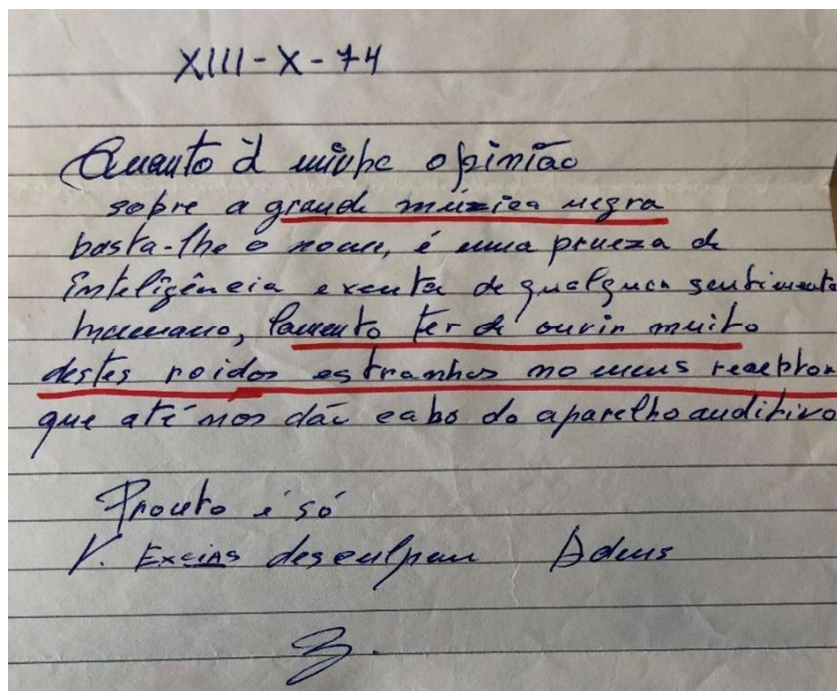 XIII-X-74
Quanto à minha opinião
sobre a grande múzica negra
basta-lhe o nome, é uma prueza de
inteligência exenta de qualquer sentimento
humano, lamento ter de ouvir muito
destes roidos estranhos no meus receptor
que até nos dão cabo do aparelho auditivo
Pronto é só
V. Excias desculpam Adeus